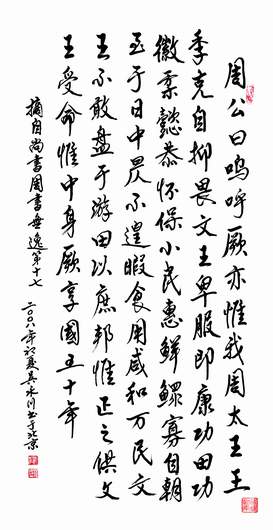 周公曰嗚呼厥亦惟我周太王王
季克自抑畏文王卑服即康功田功
徽柔懿恭怀保小民惠鮮鰥寡自朝
至于日中昃不遑暇食用咸和万民文
王不敢盘于游田以庶邦惟正之供文
王受命惟中身厥享國五十年
摘自尚書周書無逸第十七
二〇〇八年初夏吴永川书于北京